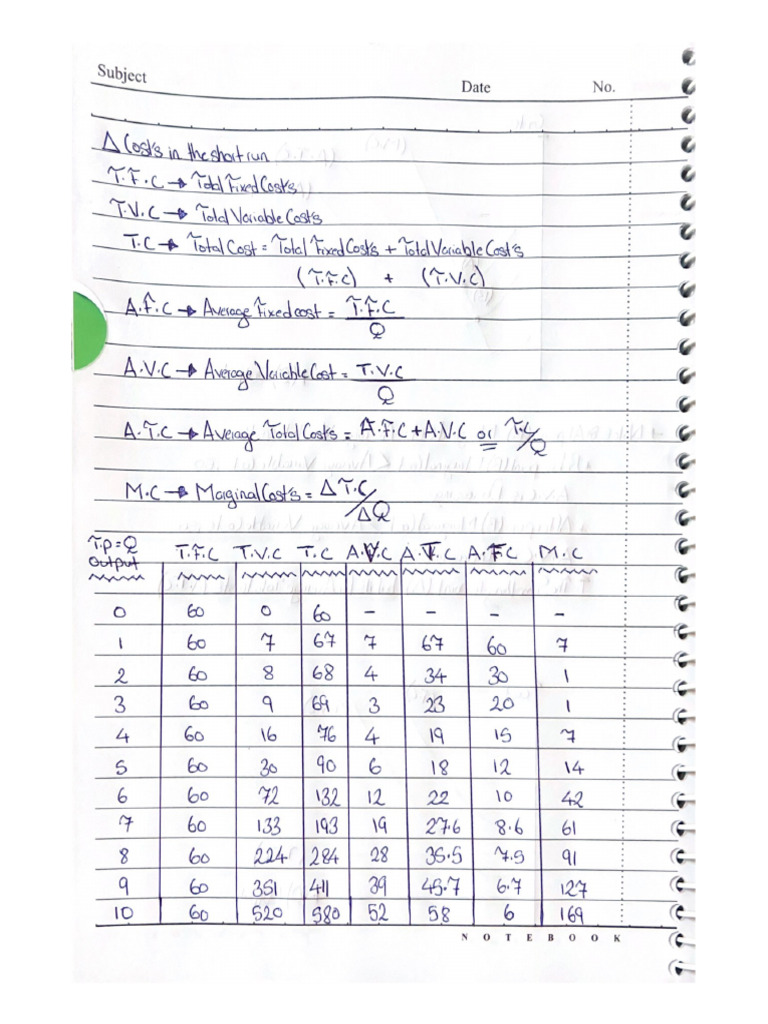 Subject
Date No.
Δ Costs in the short run
T.F.C → Total Fixed Costs
T.V.C → Total Variable Costs
T.C → Total Cost = Total Fixed Costs + Total Variable Costs
(T.F.C) + (T.V.C)
A.F.C → Average Fixed cost = T.F.C
Q
A.V.C → Average Variable Cost = T.V.C
Q
A.T.C → Average Total Costs = A.F.C + A.V.C or T.C/Q
M.C → Marginal Costs = ΔT.C/ΔQ
T.p = Q T.F.C T.V.C T.C A.V.C A.T.C A.F.C M.C
output
0 60 0 60 - - - -
1 60 7 67 7 67 60 7
2 60 8 68 4 34 30 1
3 60 9 69 3 23 20 1
4 60 16 76 4 19 15 7
5 60 30 90 6 18 12 14
6 60 72 132 12 22 10 42
7 60 133 193 19 27.6 8.6 61
8 60 224 284 28 35.5 7.5 91
9 60 351 411 39 45.7 6.7 127
10 60 520 580 52 58 6 169
NOTEBOOK